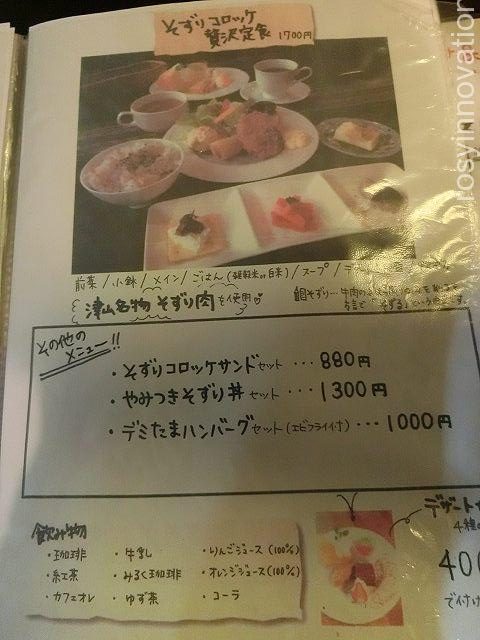 そずりコロッケ
贅沢定食 1700円
前菜/小鉢/メイン/ごはん(雑穀米or白米)/スープ/デ
津山名物 そずり肉を使用♡
その他の
メニュー!!
・そずりコロッケサンドセット ・・・ 880円
・やみつきそずり丼 セット ・・・ 1300円
・デミたまハンバーグセット(エビフライ付) ・・・ 1000円
飲み物
・珈琲 ・牛乳 ・りんごジュース(100%)
・紅茶 ・みるく珈琲 ・オレンジジュース(100%)
・カフェオレ ・ゆず茶 ・コーラ
デザート
4種の
400
で付け
rosyinnovation